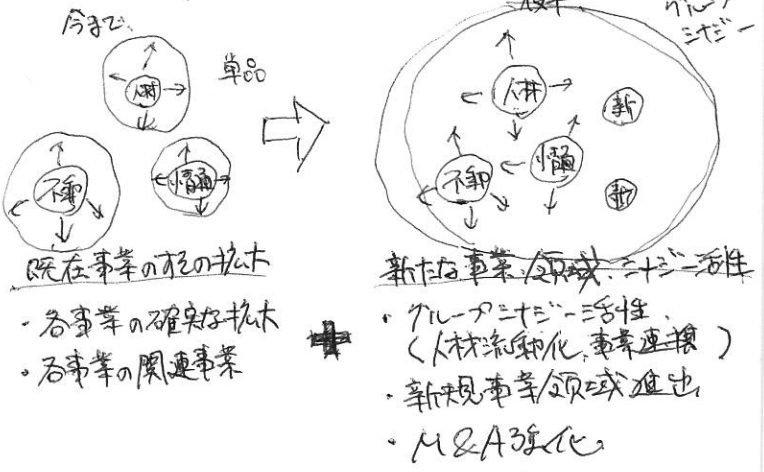 今まで
単品
人材
不動
情通
既存事業のすその拡大
・各事業の確実な拡大
・各事業の関連事業
+
グループ
シナジー
人材
新
情通
不動
新
新たな事業領域、シナジー活性
・グループシナジー活性
(人材流動化、事業連携)
・新規事業領域進出
・M&A強化